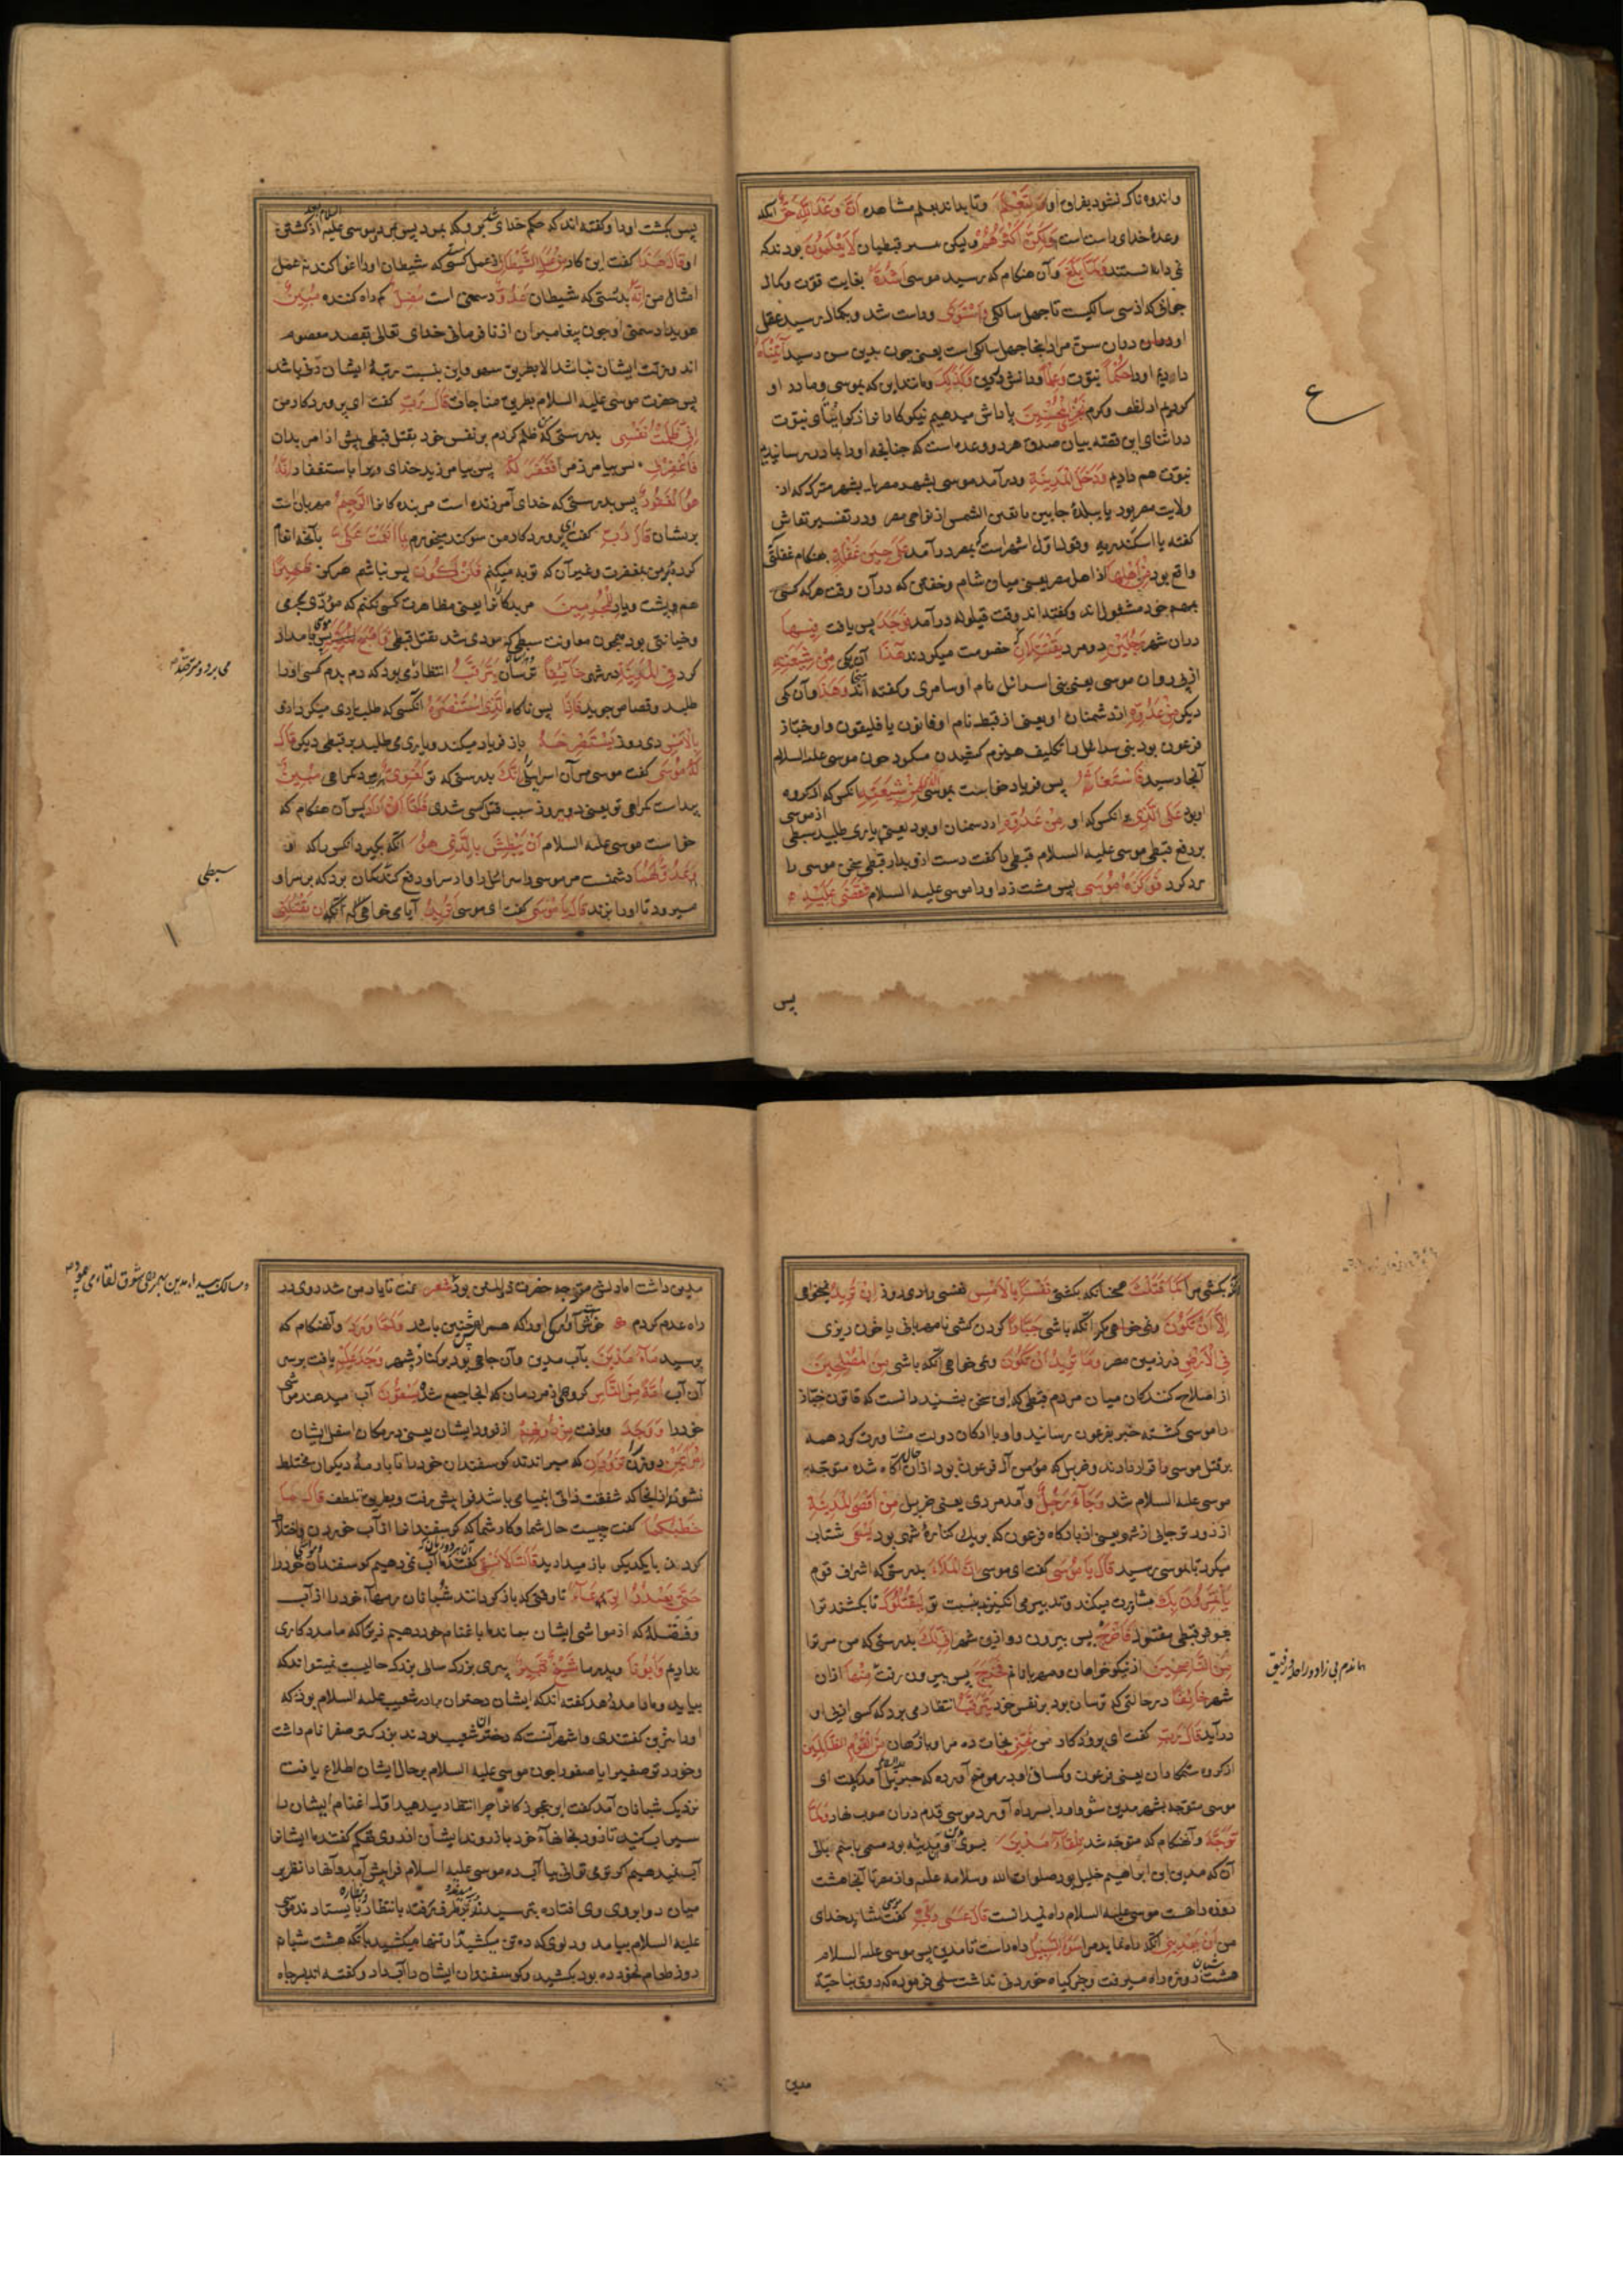 واندوه ناک نشود بفراق او وَلِتَعْلَمَ وتا بداند بعلم مشاهده اَنَّ وَعْدَ اللّٰهِ حَقٌّ آنکه
وعدهٔ خدای راست است وَلٰکِنَّ اَکْثَرَهُمْ ولیکن قبطیان لَا یَعْلَمُونَ بودند که
نمی دانستند وَلَمَّا بَلَغَ وآن هنکام که رسید موسی اَشُدَّهُ بغایت قوّت وکمال
جوانی که از سی سالکیست تا چهل سالکی وَاسْتَوٰی وراست شد وبکمال رسید عقل
او ومراد اینجا چهل سالکی است یعنی چون بدین سن رسید آتَیْنَاهُ
دادیم او را حُکْمًا نبوّت وَعِلْمًا ودانش دین وَکَذٰلِکَ ومانند این که بموسی ومادر او
کردیم از لطف وکرم نَجْزِی الْمُحْسِنِینَ پاداش میدهیم نیکوکارانرا
در اثنای این قصّه بیان صدق هر دو وعده است که چنانچه او را بمادر رسانیدیم
نبوّت هم دادیم وَدَخَلَ الْمَدِینَةَ ودر آمد موسی بشهر مصر یا بشهر که از
ولایت مصر بود یا ببلدهٔ یا بعین الشمس از نواحی مصر ودر تفسیر نقاش
کفته یا اسکندریه وقول اوّل اشهر است که بمصر در آمد عَلٰی حِینِ غَفْلَةٍ بهنکام غفلتی
واقع بود مِنْ اَهْلِهَا از اهل مصر یعنی میان شام وخفتن که در آن وقت هر کسی
بمهم خود مشغول اند وکفته اند وقت قیلوله در آمد فَوَجَدَ پس یافت فِیهَا
در آن شهر رَجُلَیْنِ دو مرد یَقْتَتِلَانِ خصومت میکردند هٰذَا آن یکی مِنْ شِیعَتِهِ
از پی روان موسی یعنی بنی اسرائیل نام او سامری وکفته اند وَهٰذَا وآن یکی
دیکر مِنْ عَدُوِّهِ از دشمنان او یعنی از قبط نام او قانون یا فلیقون واو خبّاز
فرعون بود بنی اسرائیل را تکلیف هیزم کشیدن میکرد چون موسی علیه السلام
آنجا رسید فَاسْتَغَاثَهُ پس فریاد خواست بموسی الَّذِی مِنْ شِیعَتِهِ آنکس که از کروه
او بود عَلَی الَّذِی بر آنکس که او مِنْ عَدُوِّهِ از دشمنان او بود یعنی یاری طلبید سبطی از موسی
بر دفع قبطی موسی علیه السلام قبطی را کفت دست ازو بدار قبطی سخن موسی را
رد کرد فَوَکَزَهُ مُوسٰی پس مشت زد او را موسی علیه السلام فَقَضٰی عَلَیْهِ
پس
ع
پس بکشت او را وکفته اند که حکم خدای
او قَالَ هٰذَا کفت این کار مِنْ عَمَلِ الشَّیْطَانِ از عمل کسی که شیطان او را اغوا کند نه عمل
امثال من اِنَّهُ بدرستی که شیطان عَدُوٌّ دشمنی است مُضِلٌّ کمراه کننده مُبِینٌ
هویدا دشمنی او چون پیغامبران از نافرمانی خدای تعالی بقصد معصوم
اند وزلّت ایشان نباشد الا بطریق سهو واین بنسبت رتبهٔ ایشان باشد
پس حضرت موسی علیه السلام بطریق مناجات قَالَ رَبِّ کفت ای پروردکار من
اِنِّی ظَلَمْتُ نَفْسِی بدرستی که من ظلم کردم بر نفس خود بقتل قبطی پیش از امر بدان
فَاغْفِرْ لِی پس بیامرز مرا فَغَفَرَ لَهُ پس بیامرزید خدای ویرا باستغفار اِنَّهُ
هُوَ الْغَفُورُ پس بدرستی که خدای آمرزنده است مر بنده کانرا الرَّحِیمُ مهربان است
بریشان قَالَ رَبِّ کفت ای پروردکار من سوکند میخورم بِمَا اَنْعَمْتَ عَلَیَّ بآنچه انعام
کردهٔ بر من بمغفرت وغیر آن که توبه میکنم فَلَنْ اَکُونَ پس نباشم هرکز ظَهِیرًا
هم پشت ویار لِلْمُجْرِمِینَ مر بدکانرا یعنی مظاهرت کسی نکنم که مؤدّی بجرمی
وخیانتی بود همچون معاونت سبطی که مودی شد بقتل قبطی فَاَصْبَحَ پس موسی بامداد
کرد فِی الْمَدِینَةِ در شهر خَائِفًا ترسان یَتَرَقَّبُ انتظار می برد که دم بدم کسی او را
طلبد وقصاص جوید فَاِذَا پس ناکاه الَّذِی اسْتَنْصَرَهُ آنکسی که طلب یاری میکرد ازو
بِالْاَمْسِ دی روز یَسْتَصْرِخُهُ باز فریاد میکند ویاری می طلبد بر قبطی دیکر قَالَ
لَهُ مُوسٰی کفت موسی مر آن اسرائیلی اِنَّکَ بدرستی که تو لَغَوِیٌّ مرد کمراهی مُبِینٌ
پیداست کمراهی تو یعنی دیروز سبب قتل کسی شدی فَلَمَّا اَنْ اَرَادَ پس آن هنکام که
خواست موسی علیه السلام اَنْ یَبْطِشَ بِالَّذِی هُوَ آنکه بکیرد آنکس را که او
عَدُوٌّ لَهُمَا دشمنست مر موسی را واسرائیلی را
میرود تا او را بزند قَالَ یَا مُوسٰی کفت ای موسی اَتُرِیدُ آیا می خواهی اَنْ تَقْتُلَنِی
سبطی
بکشی مرا کَمَا قَتَلْتَ همچنانکه بکشتی نَفْسًا بِالْاَمْسِ نفسی را دی روز اِنْ تُرِیدُ نمیخواهی
اِلَّا اَنْ تَکُونَ مکر آنکه باشی جَبَّارًا کردن کشی نا مهربانی یا خون ریزی
فِی الْاَرْضِ در زمین مصر وَمَا تُرِیدُ اَنْ تَکُونَ ونمی خواهی آنکه باشی مِنَ الْمُصْلِحِینَ
از اصلاح کنندکان میان مردم قبطی که این سخن بشنید دانست که قانون خبّاز
را موسی کشته خبر بفرعون رسانید واو با ارکان دولت مشاورت کرد همه
بر قتل موسی قرار دادند وخربیل که مؤمن آل فرعون بود از آن حال آکاه شده متوجّه
موسی علیه السلام شد وَجَاءَ رَجُلٌ وآمد مردی یعنی خربیل مِنْ اَقْصَی الْمَدِینَةِ
از دورتر جائی از شهر یعنی از بارکاه فرعون که بر یک کنارهٔ شهر بود یَسْعٰی شتاب
میکرد تا بموسی رسید قَالَ یَا مُوسٰی کفت ای موسی اِنَّ الْمَلَاَ بدرستی که اشراف قوم
یَاْتَمِرُونَ بِکَ مشاورت میکند وتدبیر می انکیزند بنسبت تو لِیَقْتُلُوکَ تا بکشند ترا
بعوض قبطی مقتول فَاخْرُجْ پس بیرون رو ازین شهر اِنِّی لَکَ بدرستی که من مر ترا
مِنَ النَّاصِحِینَ از نیکو خواهان ومهربانانم فَخَرَجَ پس بیرون رفت مِنْهَا از آن
شهر خَائِفًا در حالتی که ترسان بود بر نفس خود یَتَرَقَّبُ انتظار می برد که کسی از پی او
در آید قَالَ رَبِّ کفت ای پروردکار من نَجِّنِی نجات ده مرا وباز رهان مِنَ الْقَوْمِ الظَّالِمِینَ
از کروه ستمکاران یعنی فرعون وکسان او در آورده که جبرئیل آمد کفت ای
موسی متوجّه بشهر مدین شو واو را بسر راه آورد موسی قدم در آن صوب نهاد وَلَمَّا
تَوَجَّهَ وآنهنکام که متوجه شد تِلْقَاءَ مَدْیَنَ بسوی مدین وآن قریهٔ بود مسمّی باسم بانی
آن که مدین ابن ابراهیم خلیل بود صلوات الله وسلامه علیه واز مصر تا آنجا هشت
روزه راهست موسی علیه السلام راه نمیدانست قَالَ عَسٰی رَبِّی کفت موسی شاید خدای
من اَنْ یَهْدِیَنِی آنکه راه نماید مرا سَوَاءَ السَّبِیلِ راه راست تا مدین پس موسی علیه السلام
هشت شبان روز راه میرفت وجز کیاه خوردنی نداشت سلمی فرموده که روی بناحیهٔ
مدین
مدین داشت اما دلش متوجه حضرت ذو المنن بود شعر غمت تا یار من شد روی در
راه عدم کردم خوش آوارکی آنرا که همراهی چنین باشد وَلَمَّا وَرَدَ وآنهنکام که
برسید مَاءَ مَدْیَنَ بآب مدین وآن چاهی بود بر کنار شهر وَجَدَ عَلَیْهِ یافت بر سر
آن آب اُمَّةً مِنَ النَّاسِ کروهی از مردمان که آنجا جمع شده یَسْقُونَ آب میدهند مواشی
خود را وَوَجَدَ ویافت مِنْ دُونِهِمْ از فرود ایشان یعنی در مکان اسفل ایشان
امْرَاَتَیْنِ دو زن را تَذُودَانِ که میراندند کوسفندان خود را تا با رمهٔ دیکران مختلط
نشوند از آنجا که شفقت ذاتی انبیا می باشد فرا پیش رفت وبطریق تلطف قَالَ مَا
خَطْبُکُمَا کفت چیست حال شما وکار شما که کوسفندانرا از آب خوردن
کردن با یکدیکر باز میدارید قَالَتَا لَا نَسْقِی کفتند ما آب نمی دهیم کوسفندان خود را
حَتّٰی یُصْدِرَ الرِّعَاءُ تا وقتی که باز کردانند شبانان رمهاء خود را از آب
وفضلهٔ که از مواشی ایشان بماند ما باغنام خود دهیم زیرا که ما مددکاری
نداریم وَاَبُونَا وپدر ما شَیْخٌ کَبِیرٌ پیری بزرک سالی بزرک حالیست نمیتواند که
بیاید وما را مدد دهد کفته اند که ایشان دختران برادر شعیب علیه السلام بودند که
او را یثرین کفتندی واشهر آنست که دختران شعیب بودند بزرکتر صفرا نام داشت
وخوردتر صفیرا یا صفورا چون موسی علیه السلام بر حال ایشان اطلاع یافت
نزدیک شبانان آمد کفت این عجوزکانرا چرا انتظار میدهید اوّل اغنام ایشان را
سیراب کنید تا زود بخانهاء خود باز روند ایشان از روی تهکم کفتند ما ایشانرا
آب نمیدهیم اکر تو می توانی بیا آب ده موسی علیه السلام فرا پیش آمد وآنها
میان دو ابروی وی افتاده بترسیدند بر طرف رفته بانتظار بایستادند موسی
علیه السلام بیامد ودلوی که ده تن میکشید تنها میکشید با آنکه هشت شبان
روز طعام نخورده بود بکشید وکوسفندان ایشان را آب داد وکفته اند بر سر چاه